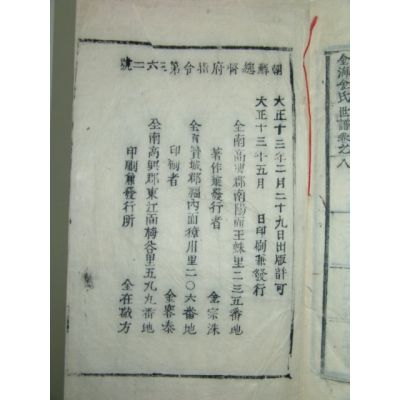 朝鮮總督府指令第三六二號
大正十三年二月二十九日出版許可
大正十三年五月　日印刷兼發行
全南高興郡南陽面王蛛里二三五番地
著作兼發行者　金宗洙
全南寶城郡福內面樟川里二〇六番地
印刷者　金容泰
全南高興郡東江面梅谷里五九九番地
印刷兼發行所　全在
金海金氏世譜卷之八